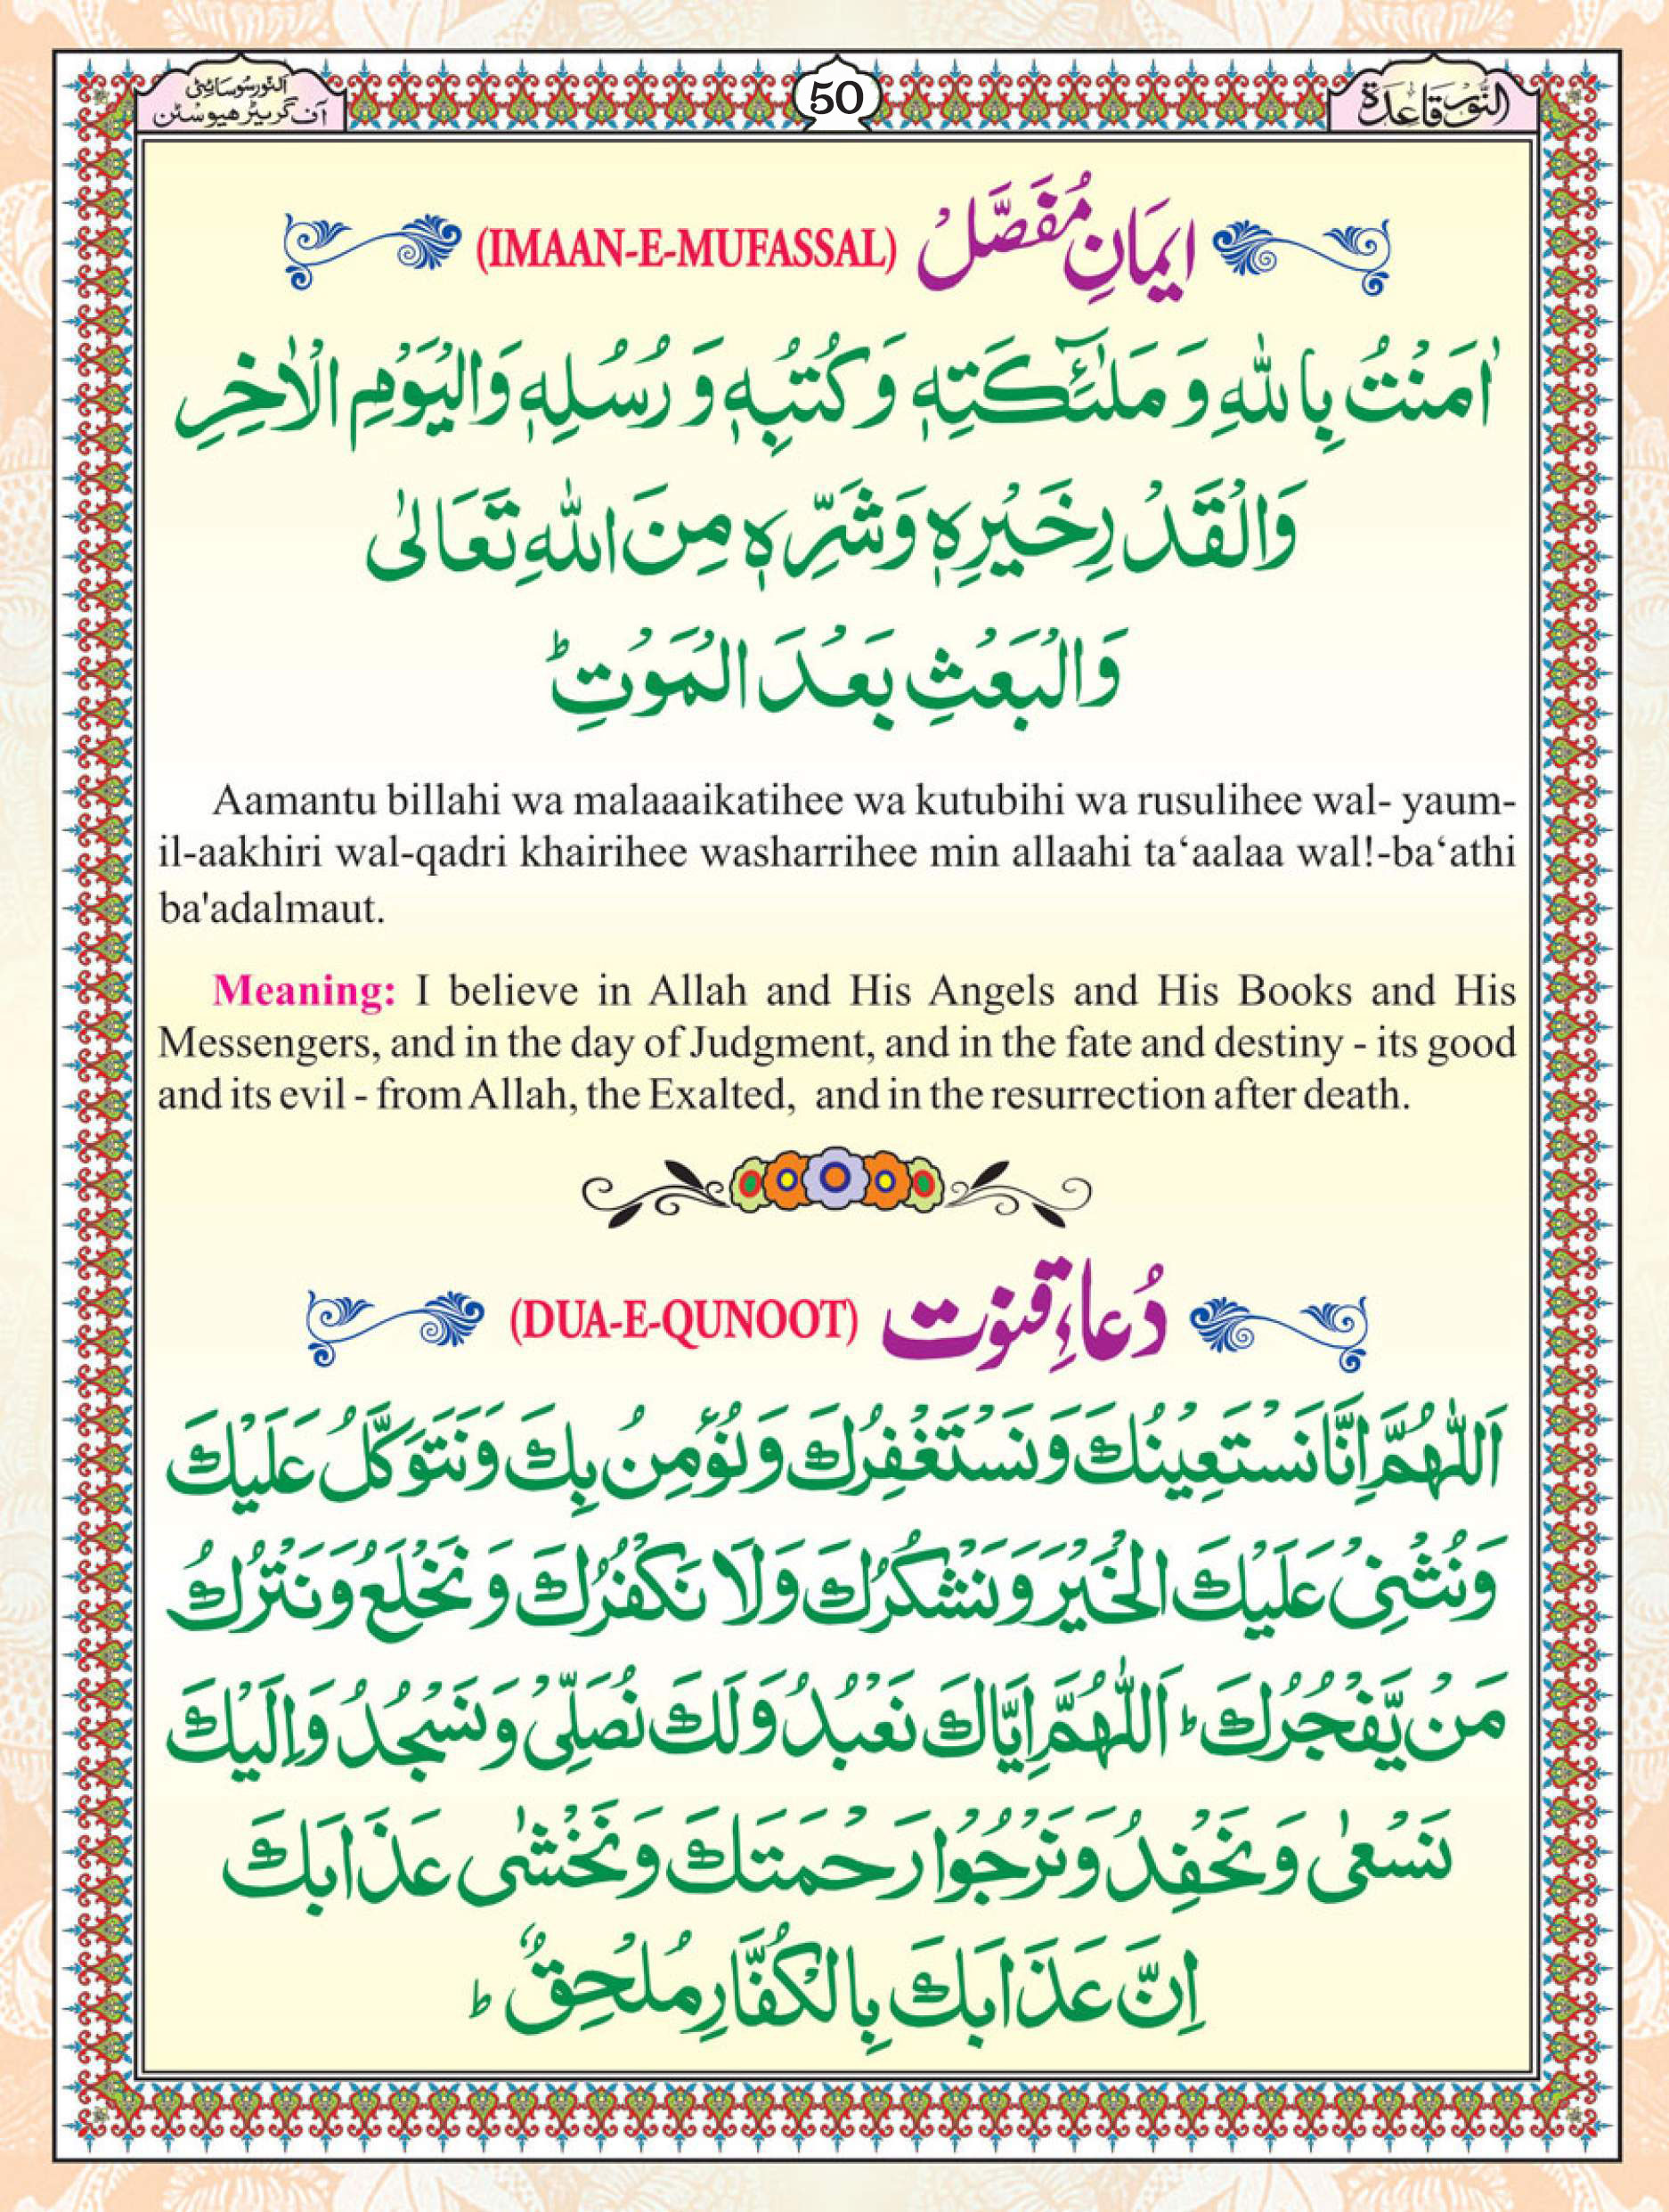 النُّوْر قَاعِدَة
50
اَلنّور سُوسَائِٹی
آف گریٹر ھیوسٹن
اِیمَانِ مُفَصَّلْ (IMAAN-E-MUFASSAL)
اٰمَنْتُ بِاللّٰهِ وَ مَلٰٓئِكَتِهٖ وَ كُتُبِهٖ وَ رُسُلِهٖ وَالْيَوْمِ الْاٰخِرِ
وَالْقَدْرِ خَيْرِهٖ وَشَرِّهٖ مِنَ اللّٰهِ تَعَالٰى
وَالْبَعْثِ بَعْدَ الْمَوْتِ ؕ
Aamantu billahi wa malaaaikatihee wa kutubihi wa rusulihee wal- yaum-
il-aakhiri wal-qadri khairihee washarrihee min allaahi ta‘aalaa wal!-ba‘athi
ba'adalmaut.
Meaning: I believe in Allah and His Angels and His Books and His
Messengers, and in the day of Judgment, and in the fate and destiny - its good
and its evil - from Allah, the Exalted, and in the resurrection after death.
دُعاءِ قنوُت (DUA-E-QUNOOT)
اَللّٰهُمَّ اِنَّا نَسْتَعِيْنُكَ وَنَسْتَغْفِرُكَ وَنُؤْمِنُ بِكَ وَنَتَوَكَّلُ عَلَيْكَ
وَنُثْنِيْ عَلَيْكَ الْخَيْرَ وَنَشْكُرُكَ وَلَا نَكْفُرُكَ وَنَخْلَعُ وَنَتْرُكُ
مَنْ يَّفْجُرُكَ ؕ اَللّٰهُمَّ اِيَّاكَ نَعْبُدُ وَلَكَ نُصَلِّيْ وَنَسْجُدُ وَاِلَيْكَ
نَسْعٰى وَنَحْفِدُ وَنَرْجُوْا رَحْمَتَكَ وَنَخْشٰى عَذَابَكَ
اِنَّ عَذَابَكَ بِالْكُفَّارِ مُلْحِقٌ ؕ